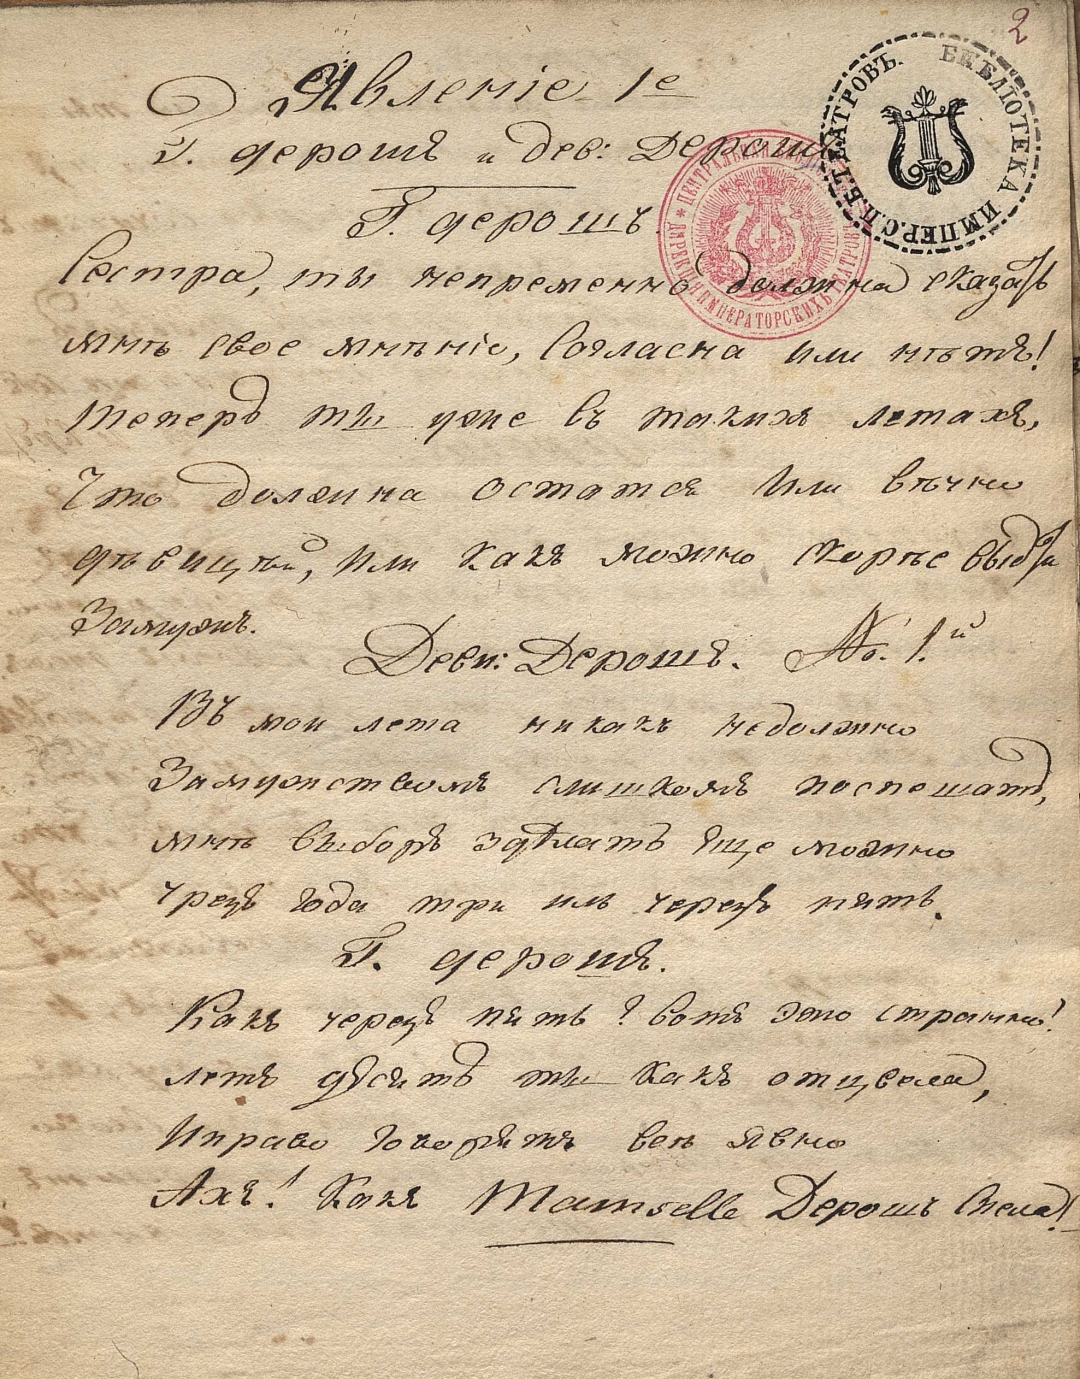 2
БИБЛІОТЕКА ИМПЕР. С.П.Б. ТЕАТРОВЪ.
ЦЕНТРАЛЬНАЯ
ДИРЕКЦІИ ИМПЕРАТОРСКИХЪ ТЕАТРОВЪ
Явленіе 1е
Г. дерошъ и дев: Дерошъ
Г. дерошъ.
Сестра, ты непременно должна сказать
мнѣ свое мнѣніе, согласна или нѣтъ!
теперь ты уже въ такихъ летахъ,
Что должна остатся или вѣчно
дѣвицей, или какъ можно скорѣе выдти
Замужъ.
Деви: Дерошъ. №. 1.й
Въ мои лета никакъ недолжно
Замужствомъ слишкомъ поспешать,
мнѣ выборъ здѣлать Еще можно
чрезъ года три иль черезъ пять.
Г. дерошъ.
Какъ черезъ пять? вотъ это странно!
летъ десять ты какъ отцвела,
Иправо говорятъ все явно
Ахъ! Какъ Mamselle Дерошъ Smела!